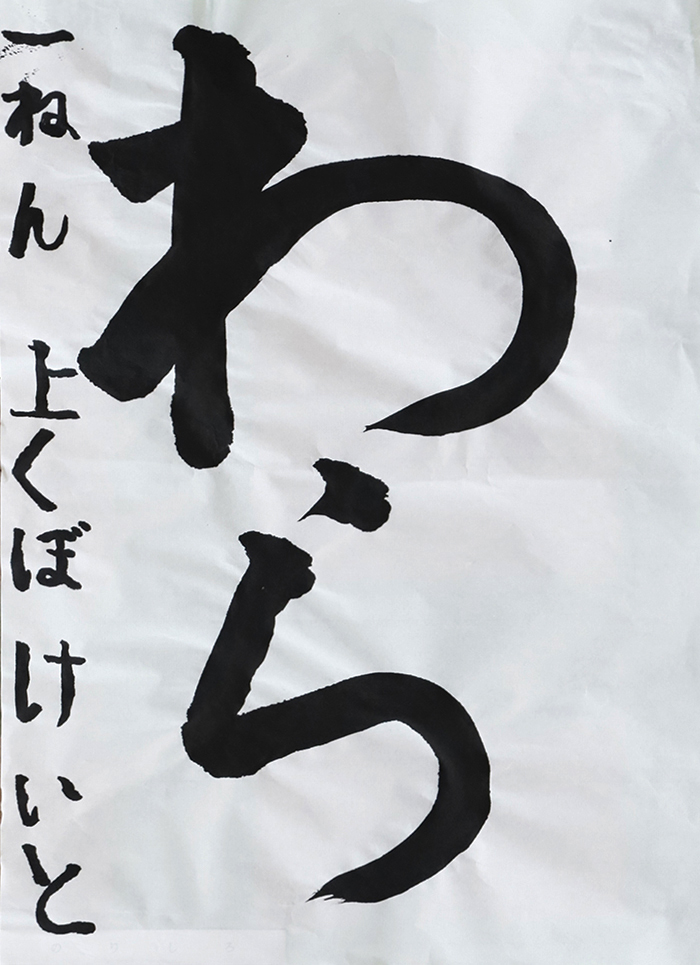 わら
一ねん 上くぼ けいと